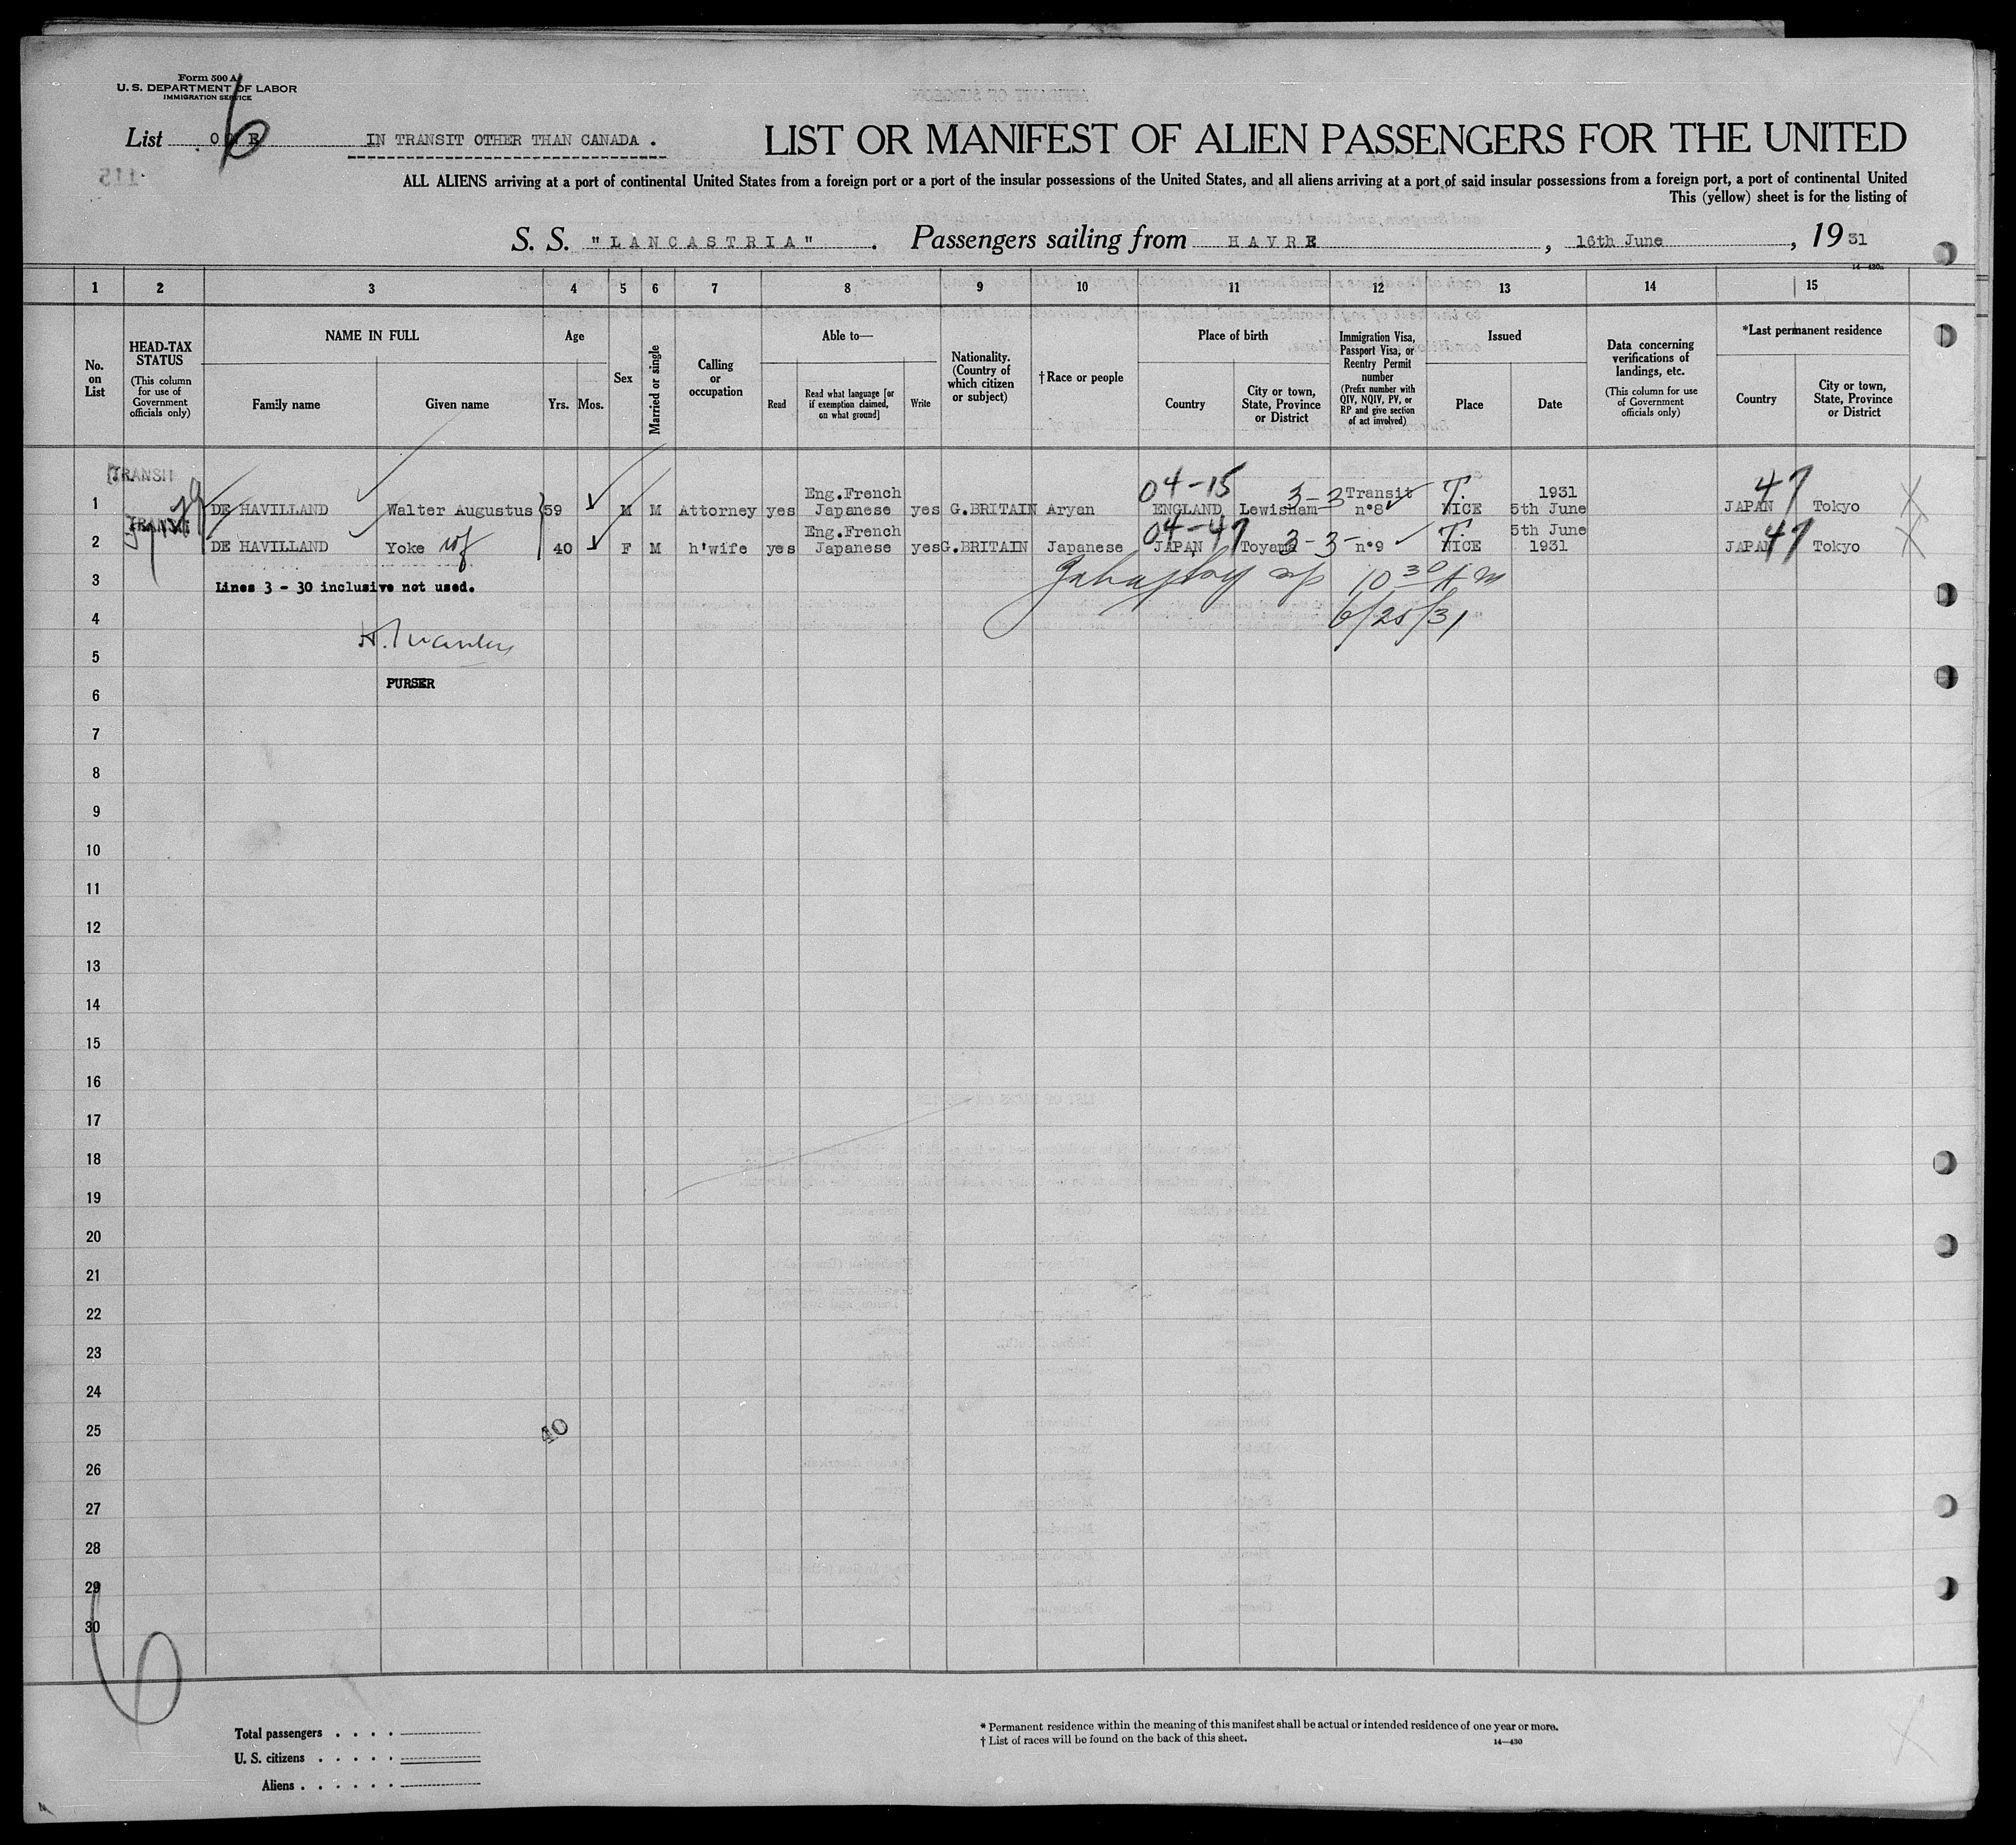 Form 500 A
U. S. DEPARTMENT OF LABOR
IMMIGRATION SERVICE
List 6 IN TRANSIT OTHER THAN CANADA .
LIST OR MANIFEST OF ALIEN PASSENGERS FOR THE UNITED
ALL ALIENS arriving at a port of continental United States from a foreign port or a port of the insular possessions of the United States, and all aliens arriving at a port of said insular possessions from a foreign port, a port of continental United
This (yellow) sheet is for the listing of
S. S. "LANCASTRIA" . Passengers sailing from HAVRE , 16th June , 19 31
14—430a
1 2 3 4 5 6 7 8 9 10 11 12 13 14 15
No. on List
HEAD-TAX STATUS
(This column for use of Government officials only)
NAME IN FULL
Family name
Given name
Age
Yrs.
Mos.
Sex
Married or single
Calling or occupation
Able to—
Read
Read what language [or if exemption claimed, on what ground]
Write
Nationality. (Country of which citizen or subject)
† Race or people
Place of birth
Country
City or town, State, Province or District
Immigration Visa, Passport Visa, or Reentry Permit number
(Prefix number with QIV, NQIV, PV, or RP and give section of act involved)
Issued
Place
Date
Data concerning verifications of landings, etc.
(This column for use of Government officials only)
*Last permanent residence
Country
City or town, State, Province or District
TRANSIT
04-15 47
Eng.French Transit T. 1931
1 DE HAVILLAND Walter Augustus 59 M M Attorney yes Japanese yes G.BRITAIN Aryan ENGLAND Lewisham 3-3 nº8 NICE 5th June JAPAN Tokyo
TRANSIT
04-47 47
Eng.French T. 5th June
2 DE HAVILLAND Yoke wf 40 F M h'wife yes Japanese yes G.BRITAIN Japanese JAPAN Toyama 3-3 nº9 NICE 1931 JAPAN Tokyo
3 Lines 3 - 30 inclusive not used. 10 30 AM
4 6/25/31
5
PURSER
6
7
8
9
10
11
12
13
14
15
16
17
18
19
20
21
22
23
24
25 40
26
27
28
29
30
6
Total passengers . . . .
U. S. citizens . . . . .
Aliens . . . . . .
* Permanent residence within the meaning of this manifest shall be actual or intended residence of one year or more.
† List of races will be found on the back of this sheet.
14—430